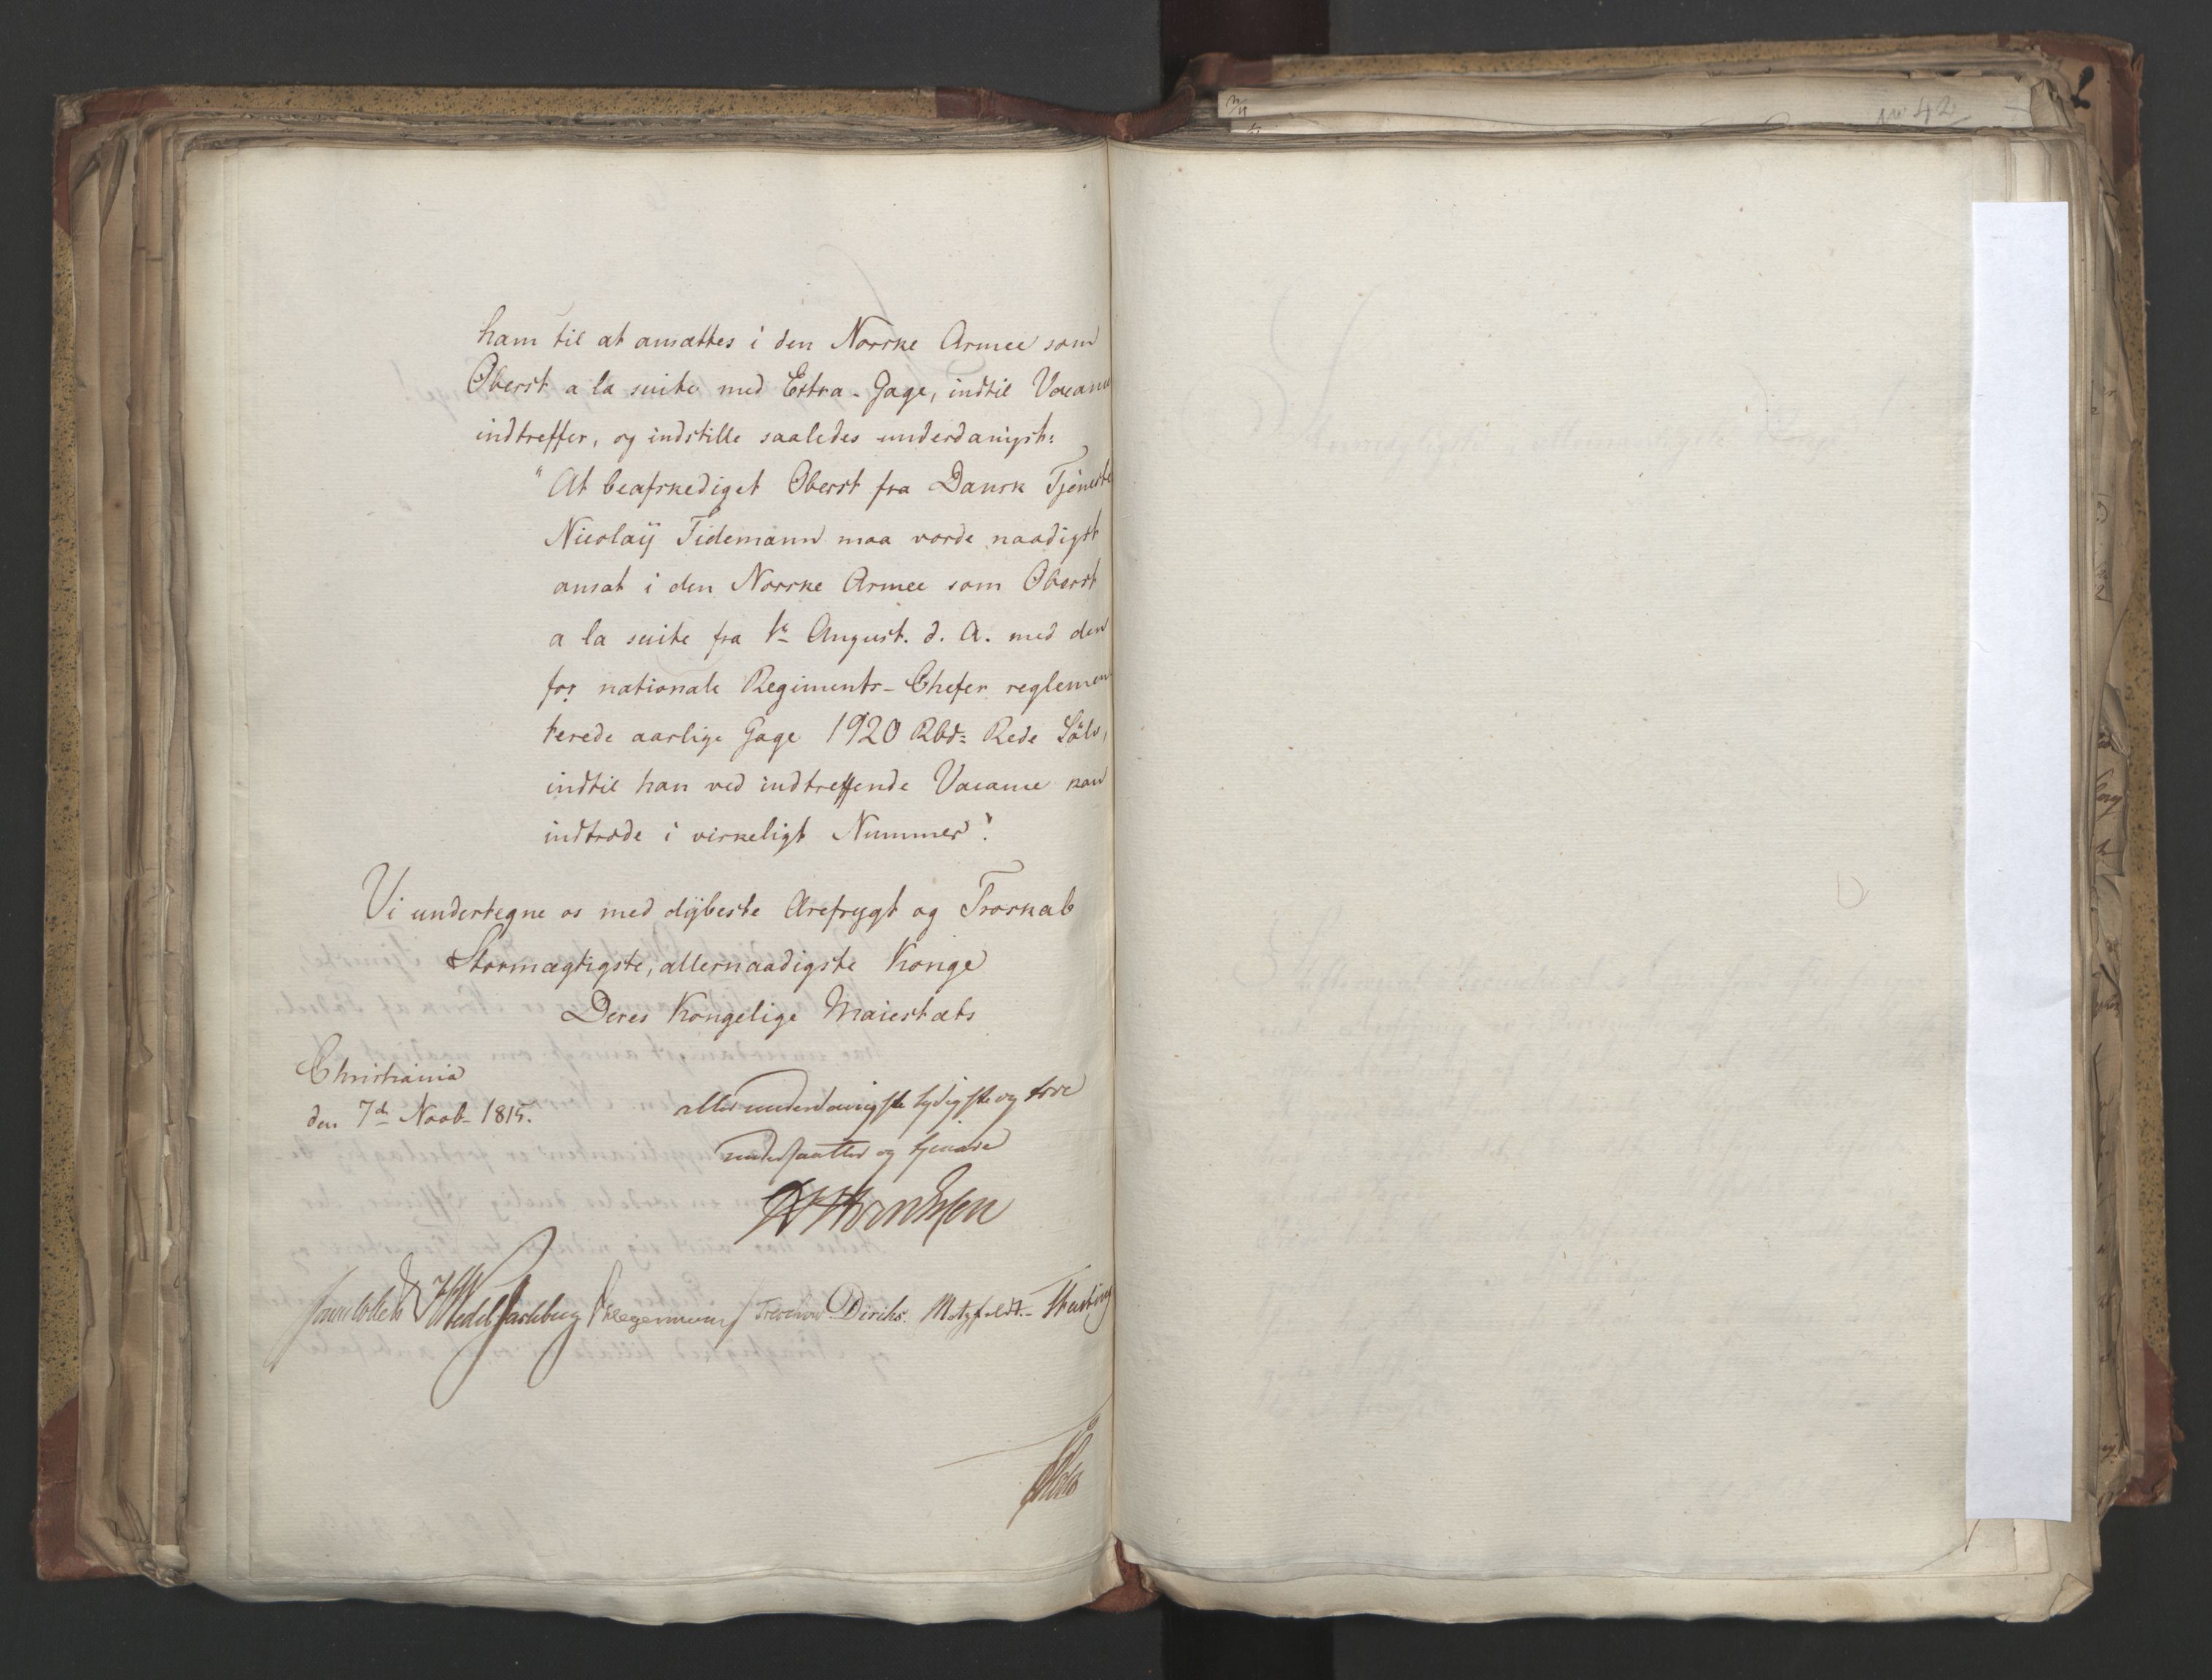 ham til at ansættes i den Norske Armee som
Oberst a la suite med Extra-Gage, indtil Vacance
indtreffer, og indstille saaledes underdanigst:
"At beafskediget Oberst fra Dansk Tjeneste
Nicolaÿ Tidemann maa vorde naadigst
ansat i den Norske Armee som Oberst
a la suite fra 1e August. d. A. med den
for nationale Regiments-Chefer reglemen
terede aarlige Gage 1920 Rbd: Rede Sölv,
indtil han ved indtreffende Vacance kan
indtræde i virkeligt Nummer".
Vi undertegne os med dÿbeste Ærefrygt og Troskab
Stormægtigste, allernaadigste Konge
Deres Kongelige Maiestæts
Christiania
den 7de Novb. 1815.
allerunderdanigste lydigste og troe
undersaatter og tjenere
Sommerfeldt Wedel Jarlsberg Hegermann Treschow Diriks. Motzfeldt. Fasting
no 42